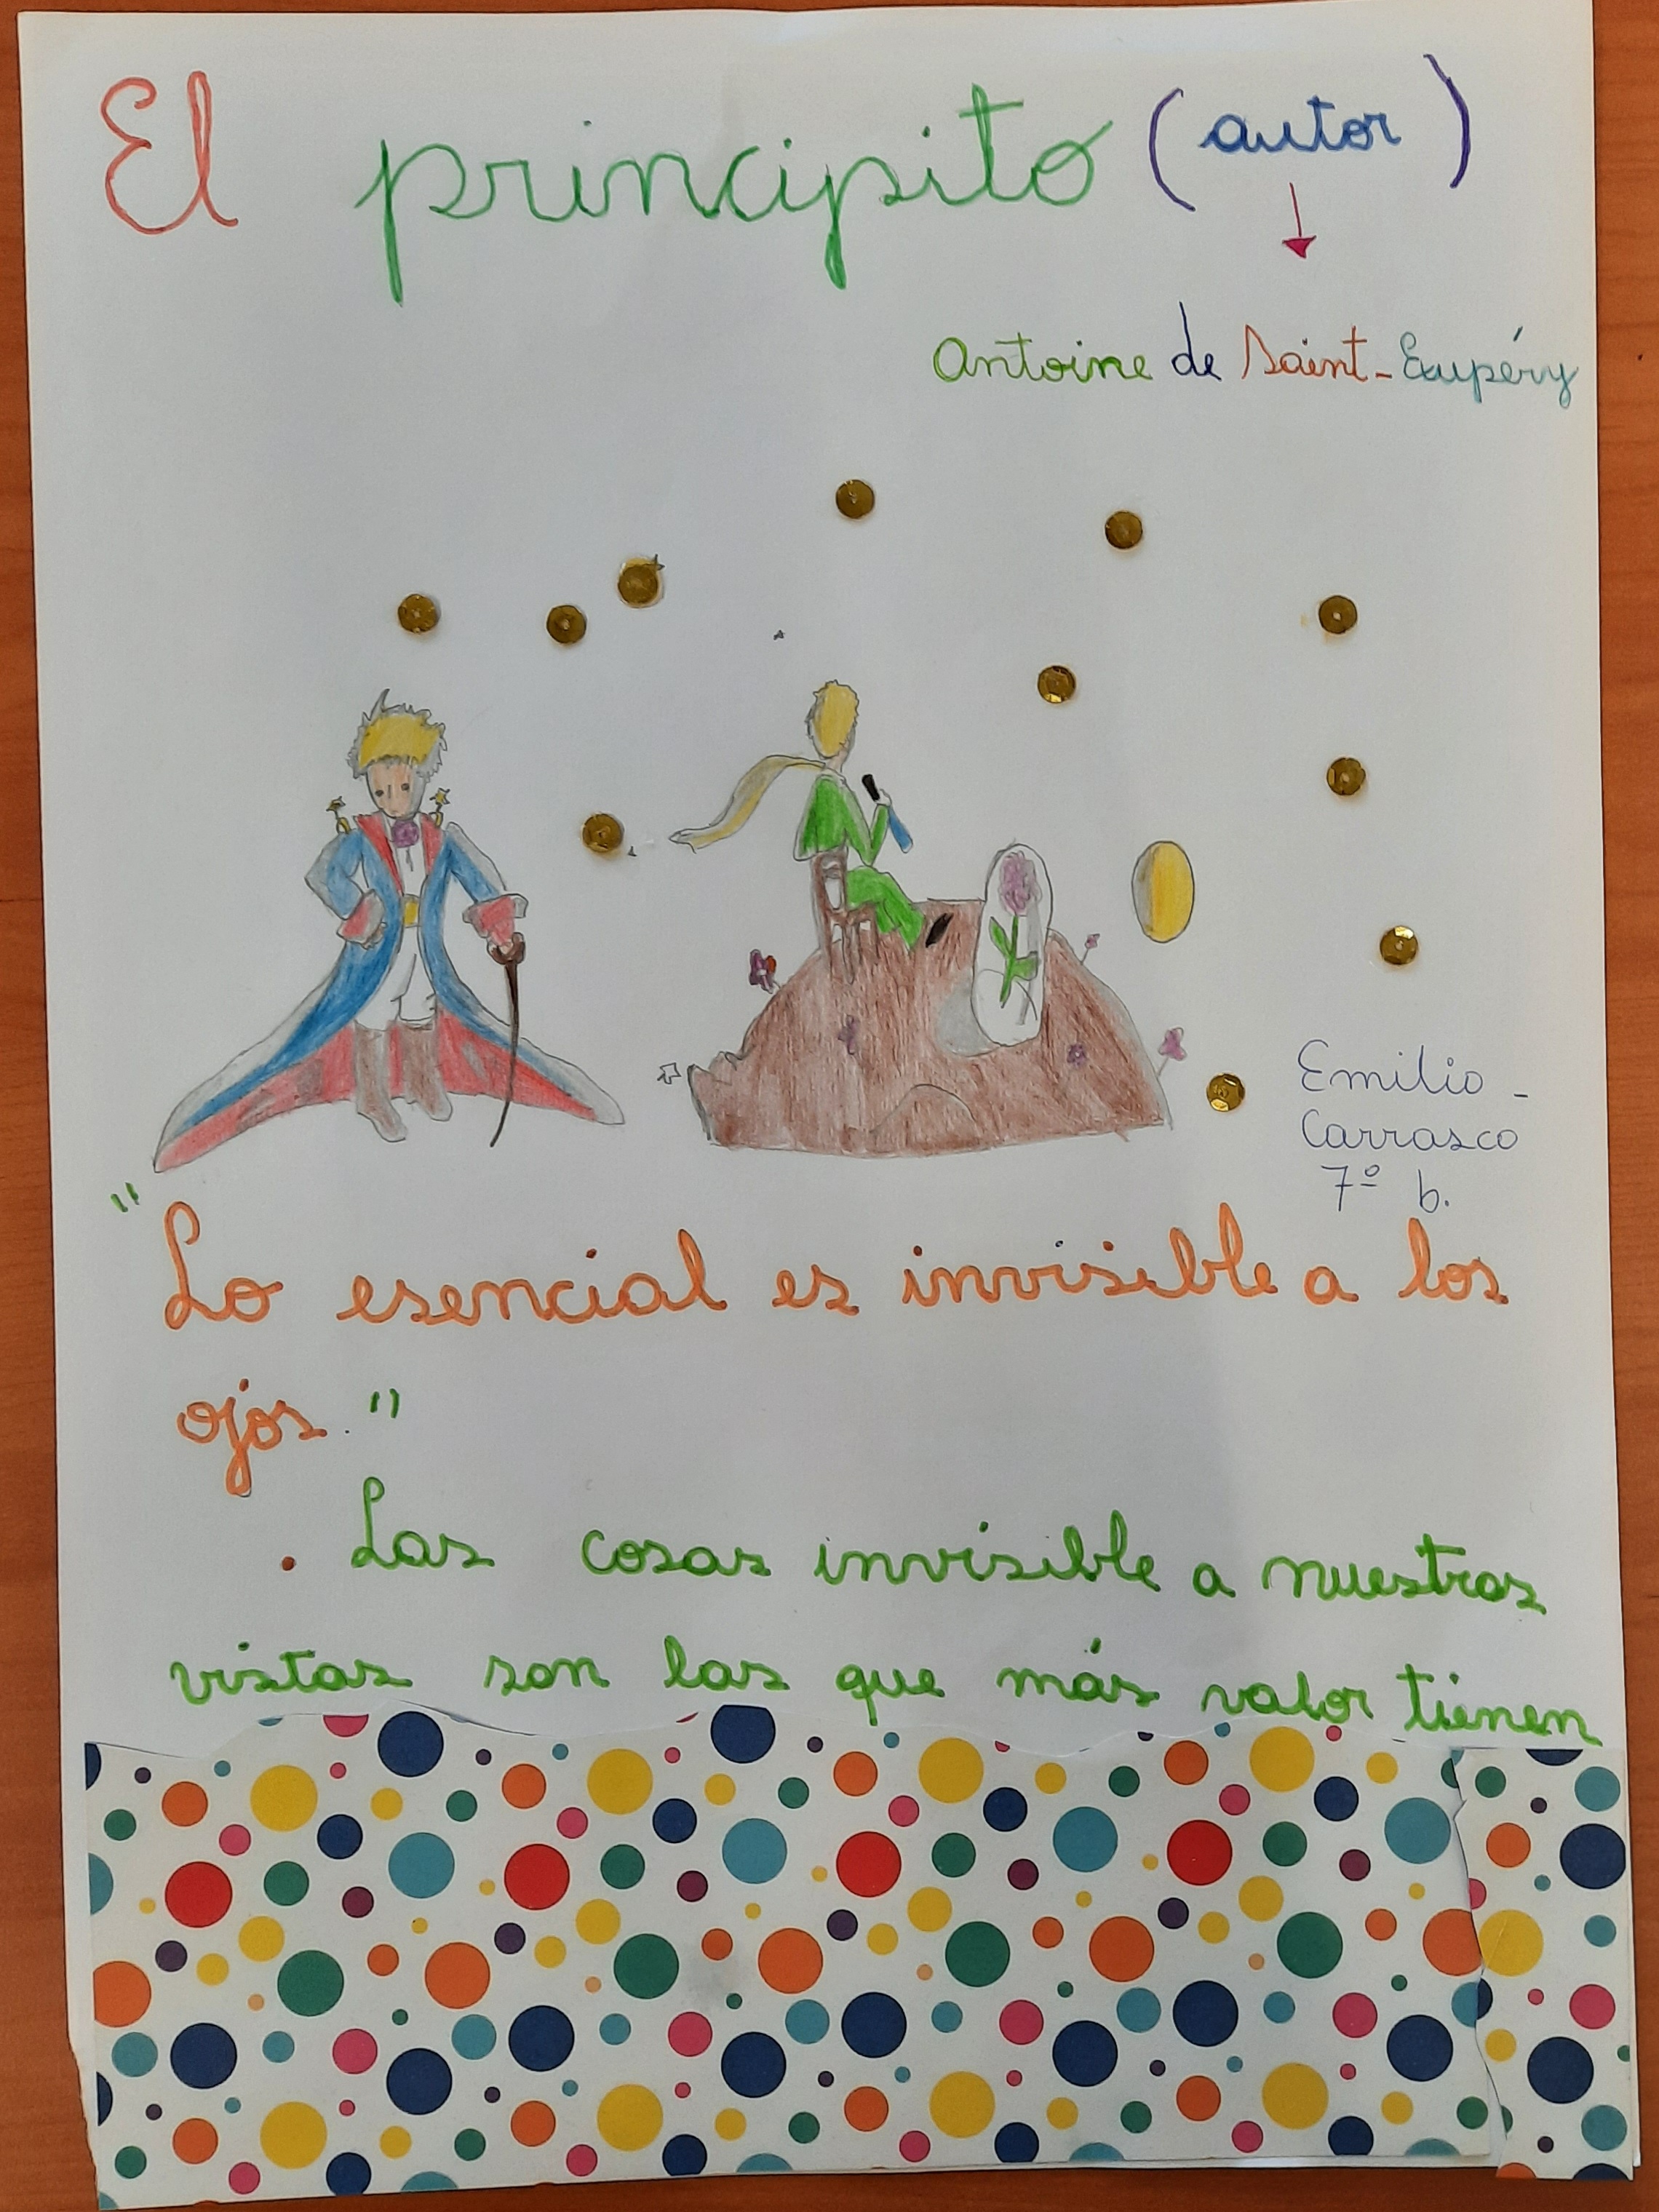 El principito (autor)
Antoine de Saint-Exupéry
Emilio -
Carrasco
7º b.
"Lo esencial es invisible a los
ojos."
. Las cosas invisible a nuestras
vistas son las que más valor tienen